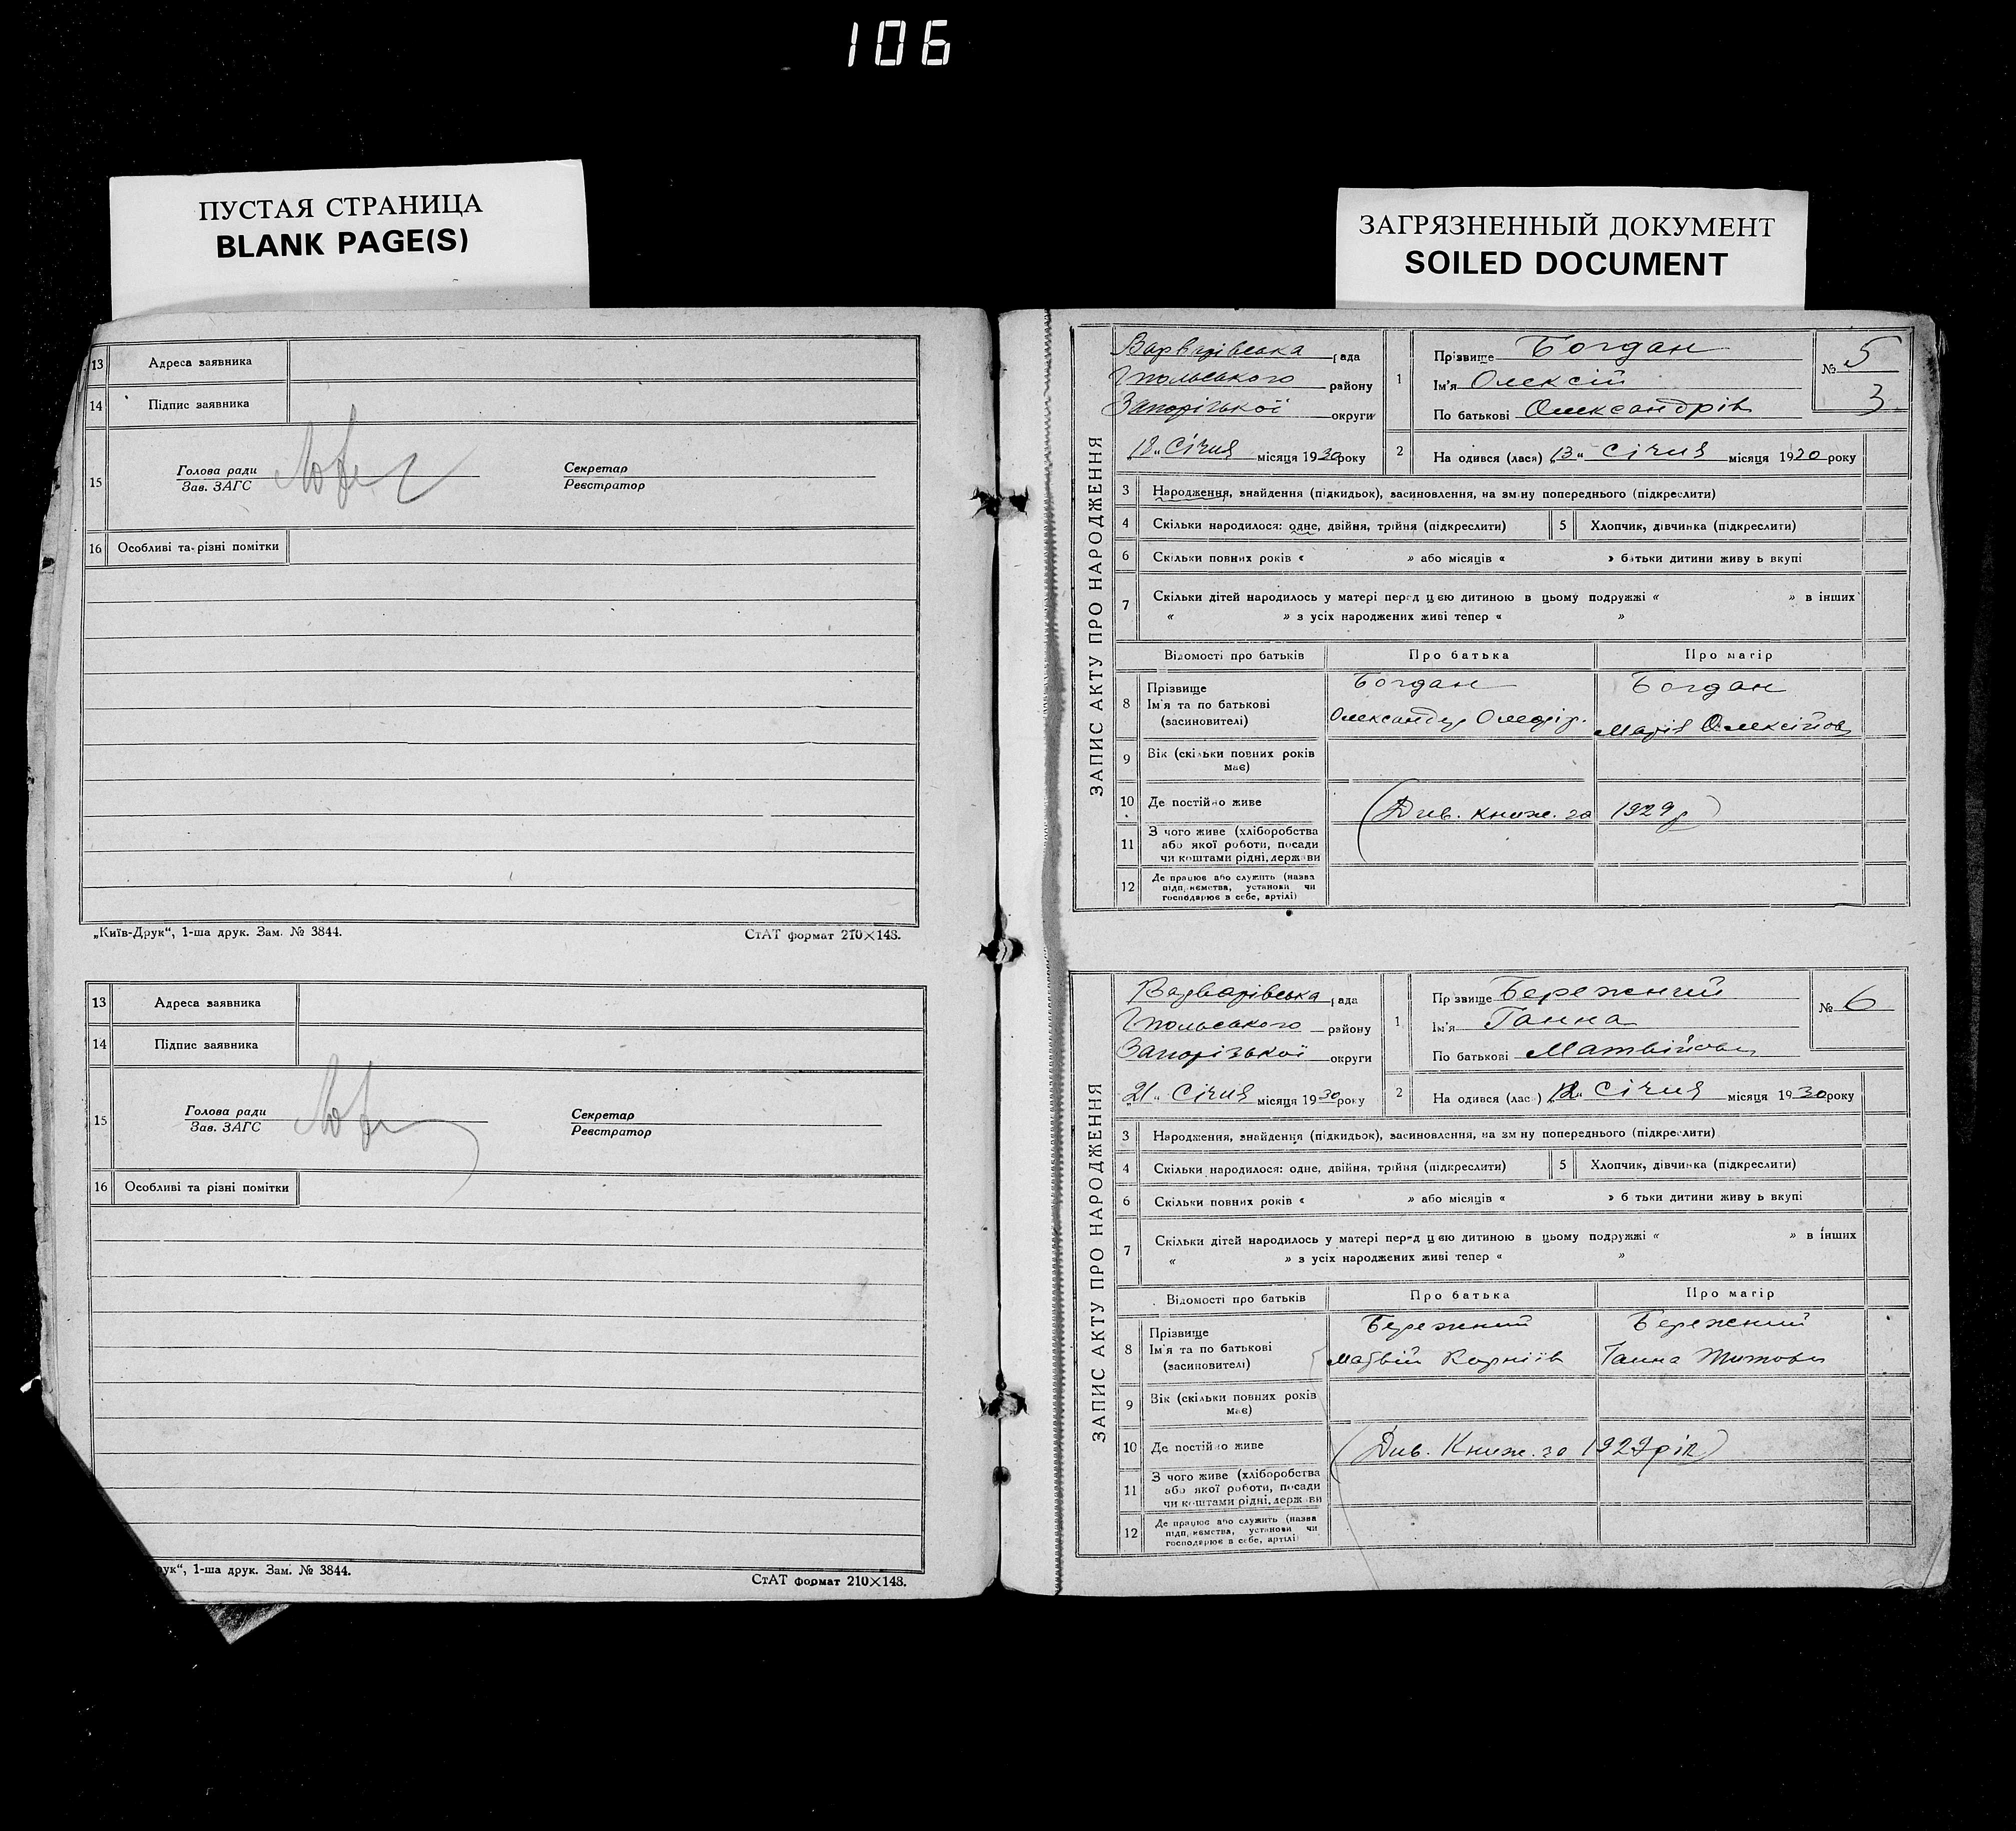 106
ПУСТАЯ СТРАНИЦА
BLANK PAGE(S)
ЗАГРЯЗНЕННЫЙ ДОКУМЕНТ
SOILED DOCUMENT
13 Адреса заявника
14 Підпис заявника
15 Голова ради Секретар
Зав. ЗАГС Реєстратор
16 Особливі та різні помітки
„Київ-Друк“, 1-ша друк. Зам. № 3844. СтАТ формат 210×148.
13 Адреса заявника
14 Підпис заявника
15 Голова ради Секретар
Зав. ЗАГС Реєстратор
16 Особливі та різні помітки
рук“, 1-ша друк. Зам. № 3844. СтАТ формат 210×148.
ЗАПИС АКТУ ПРО НАРОДЖЕННЯ
Варварівська рада
району
Запорізької округи
18 „ Січня місяця 1930 року
1 Прізвище Богдан
Ім'я Олексій
По батькові Олександрів
№ 5
3
2 На одився (лася) „13 “ Січня місяця 1930 року
3 Народження, знайдення (підкидьок), засиновлення, на зміну попереднього (підкреслити)
4 Скільки народилося: одне, двійня, трійня (підкреслити) 5 Хлопчик, дівчинка (підкреслити)
6 Скільки повних років « » або місяців « » батьки дитини живу ь вкупі
7 Скільки дітей народилось у матері перед цією дитиною в цьому подружжі « » в інших
« » з усіх народжених живі тепер « »
Відомості про батьків Про батька Про матір
8 Прізвище Богдан Богдан
Ім'я та по батькові Олександр Марія Олексійов
(засиновителі)
9 Вік (скільки повних років
має)
10 Де постійно живе (Див. книж. за 1929р)
11 З чого живе (хліборобства
або якої роботи, посади
чи коштами рідні, держави
12 Де працює або служить (назва
підприємства, установи чи
господарює в себе, артілі)
ЗАПИС АКТУ ПРО НАРОДЖЕННЯ
Варварівська рада
району
Запорізької округи
„21 „ Січня місяця 1930 року
1 Пр звище Бережний
Ім'я Ганна
По батькові Матвійовн
№ 6
2 На одився (лас ) „12 „ Січня місяця 1930 року
3 Народження, знайдення (підкидьок), засиновлення, на зміну попереднього (підкреслити)
4 Скільки народилося: одне, двійня, трійня (підкреслити) 5 Хлопчик, дівчинка (підкреслити)
6 Скільки повних років « » або місяців « » б тьки дитини живу ь вкупі
7 Скільки дітей народилось у матері перед цією дитиною в цьому подружжі « » в інших
« » з усіх народжених живі тепер « »
Відомості про батьків Про батька Про матір
8 Прізвище Бережний Бережний
Ім'я та по батькові Матвій Корніїв Ганна Титовн
(засиновителі)
9 Вік (скільки повних років
має)
10 Де постійно живе (Див. Книж. за 1929 рік)
11 З чого живе (хліборобства
або якої роботи, посади
чи коштами рідні, держави
12 Де працює або служить (назва
підприємства, установи чи
господарює в себе, артілі)